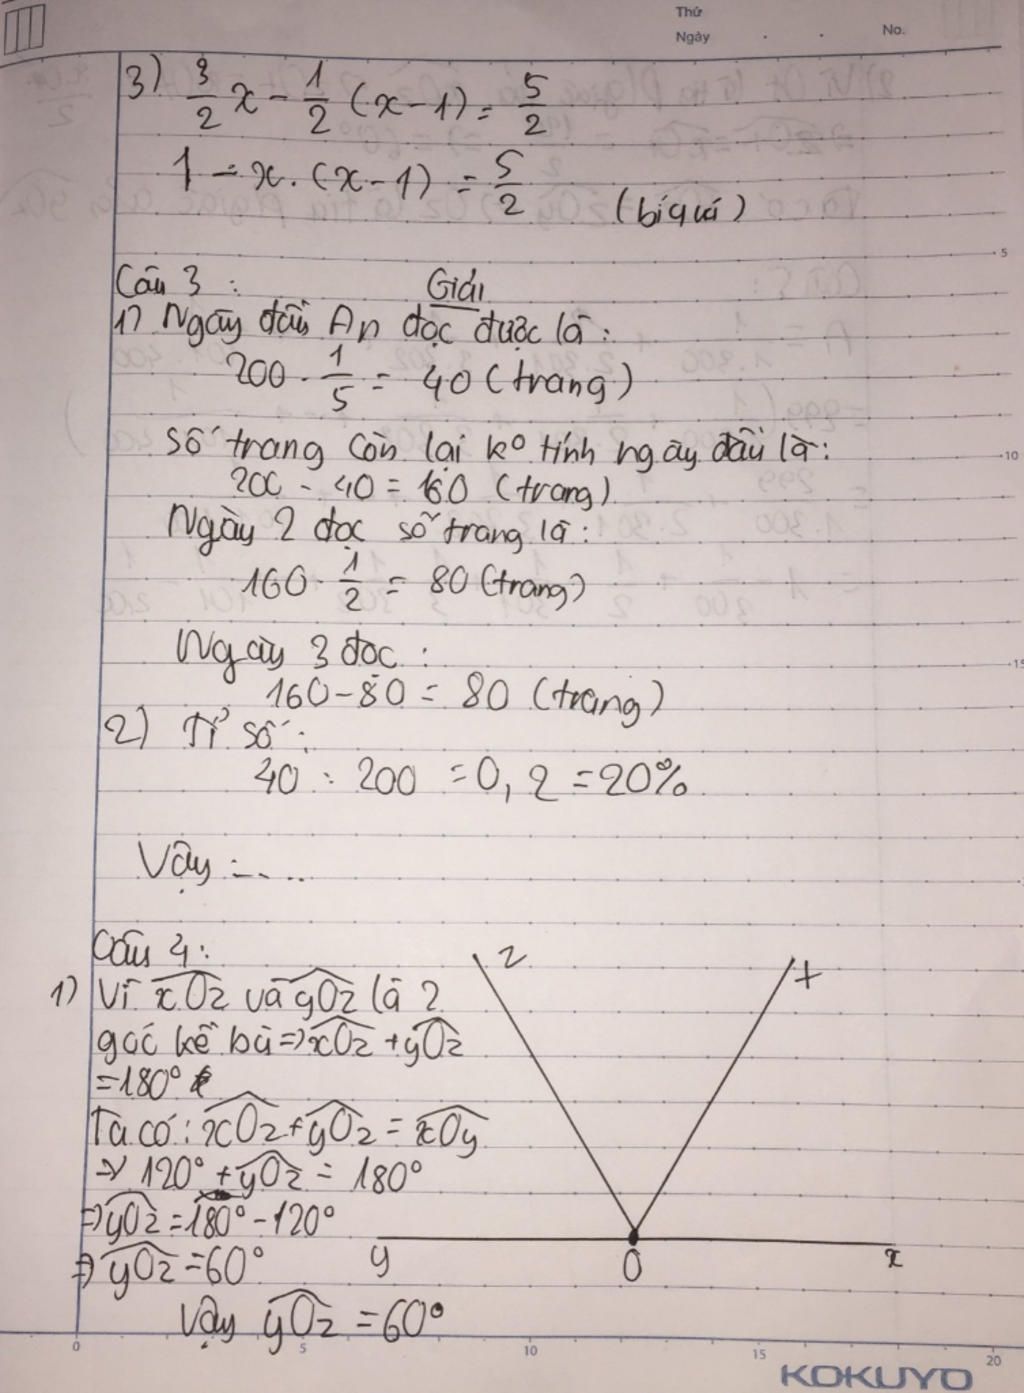 Thứ
Ngày . .
No.
3) 3/2 x - 1/2 (x-1) = 5/2
1 - x. (x-1) = 5/2 (bí quá)
5
Câu 3 : Giải
1) Ngày đầu An đọc được là:
200 . 1/5 = 40 (trang)
Số trang còn lại kº tính ngày đầu là:
10
200 - 40 = 160 (trang)
Ngày 2 đọc số trang là:
160 . 1/2 = 80 (trang)
Ngày 3 đọc :
15
160-80 = 80 (trang)
2) Tỉ số:
40 : 200 = 0,2 = 20%
Vậy :....
Câu 4:
1) Vì xOz và yOz là 2
góc kề bù => xOz + yOz
= 180°
Ta có: xOz + yOz = xOy
=> 120° + yOz = 180°
=> yOz = 180° - 120°
=> yOz = 60°
Vậy yOz = 60°
z
t
y
O
x
0 5 10 15 20
KOKUYO